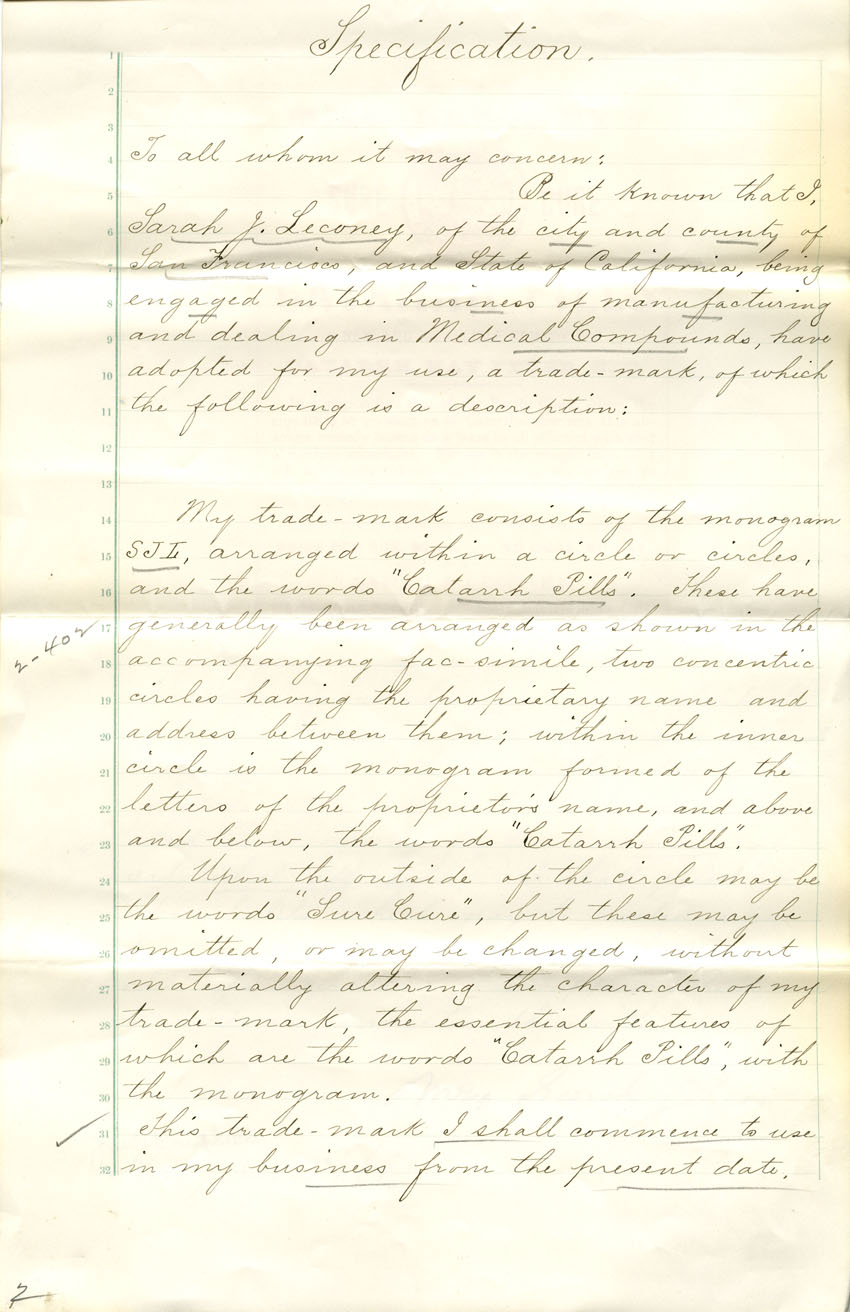 Specification.
1
2
3
4 To all whom it may concern:
5 Be it known that I,
6 Sarah J. Leconey, of the city and county of
7 San Francisco, and State of California, being
8 engaged in the business of manufacturing
9 and dealing in Medical Compounds, have
10 adopted for my use, a trade-mark, of which
11 the following is a description:
12
13
14 My trade-mark consists of the monogram
15 SJL, arranged within a circle or circles,
16 and the words "Catarrh Pills". These have
17 generally been arranged as shown in the
2-402
18 accompanying fac-simile, two concentric
19 circles having the proprietary name and
20 address between them; within the inner
21 circle is the monogram formed of the
22 letters of the proprietor's name, and above
23 and below, the words "Catarrh Pills".
24 Upon the outside of the circle may be
25 the words "Sure Cure", but these may be
26 omitted, or may be changed, without
27 materially altering the character of my
28 trade-mark, the essential features of
29 which are the words "Catarrh Pills", with
30 the monogram.
31 This trade-mark I shall commence to use
32 in my business from the present date.
2